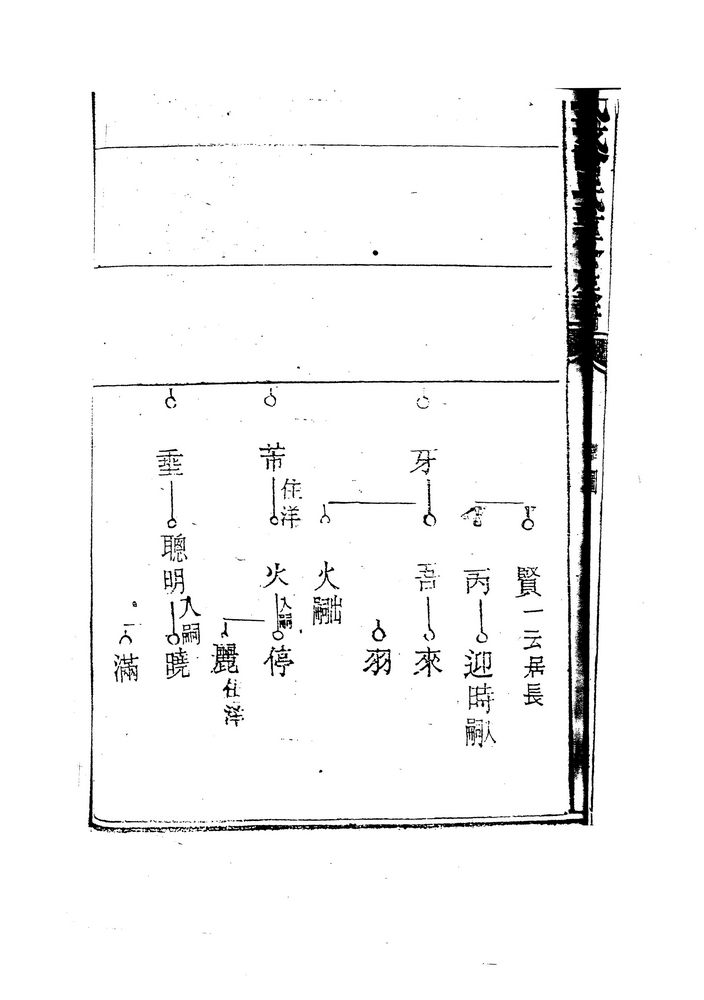 賢一云居長
丙
迎時入嗣
牙
吾
來
羽
火出嗣
芾住洋
火入嗣
停
麗住洋
垂
聰明
曉入嗣
滿